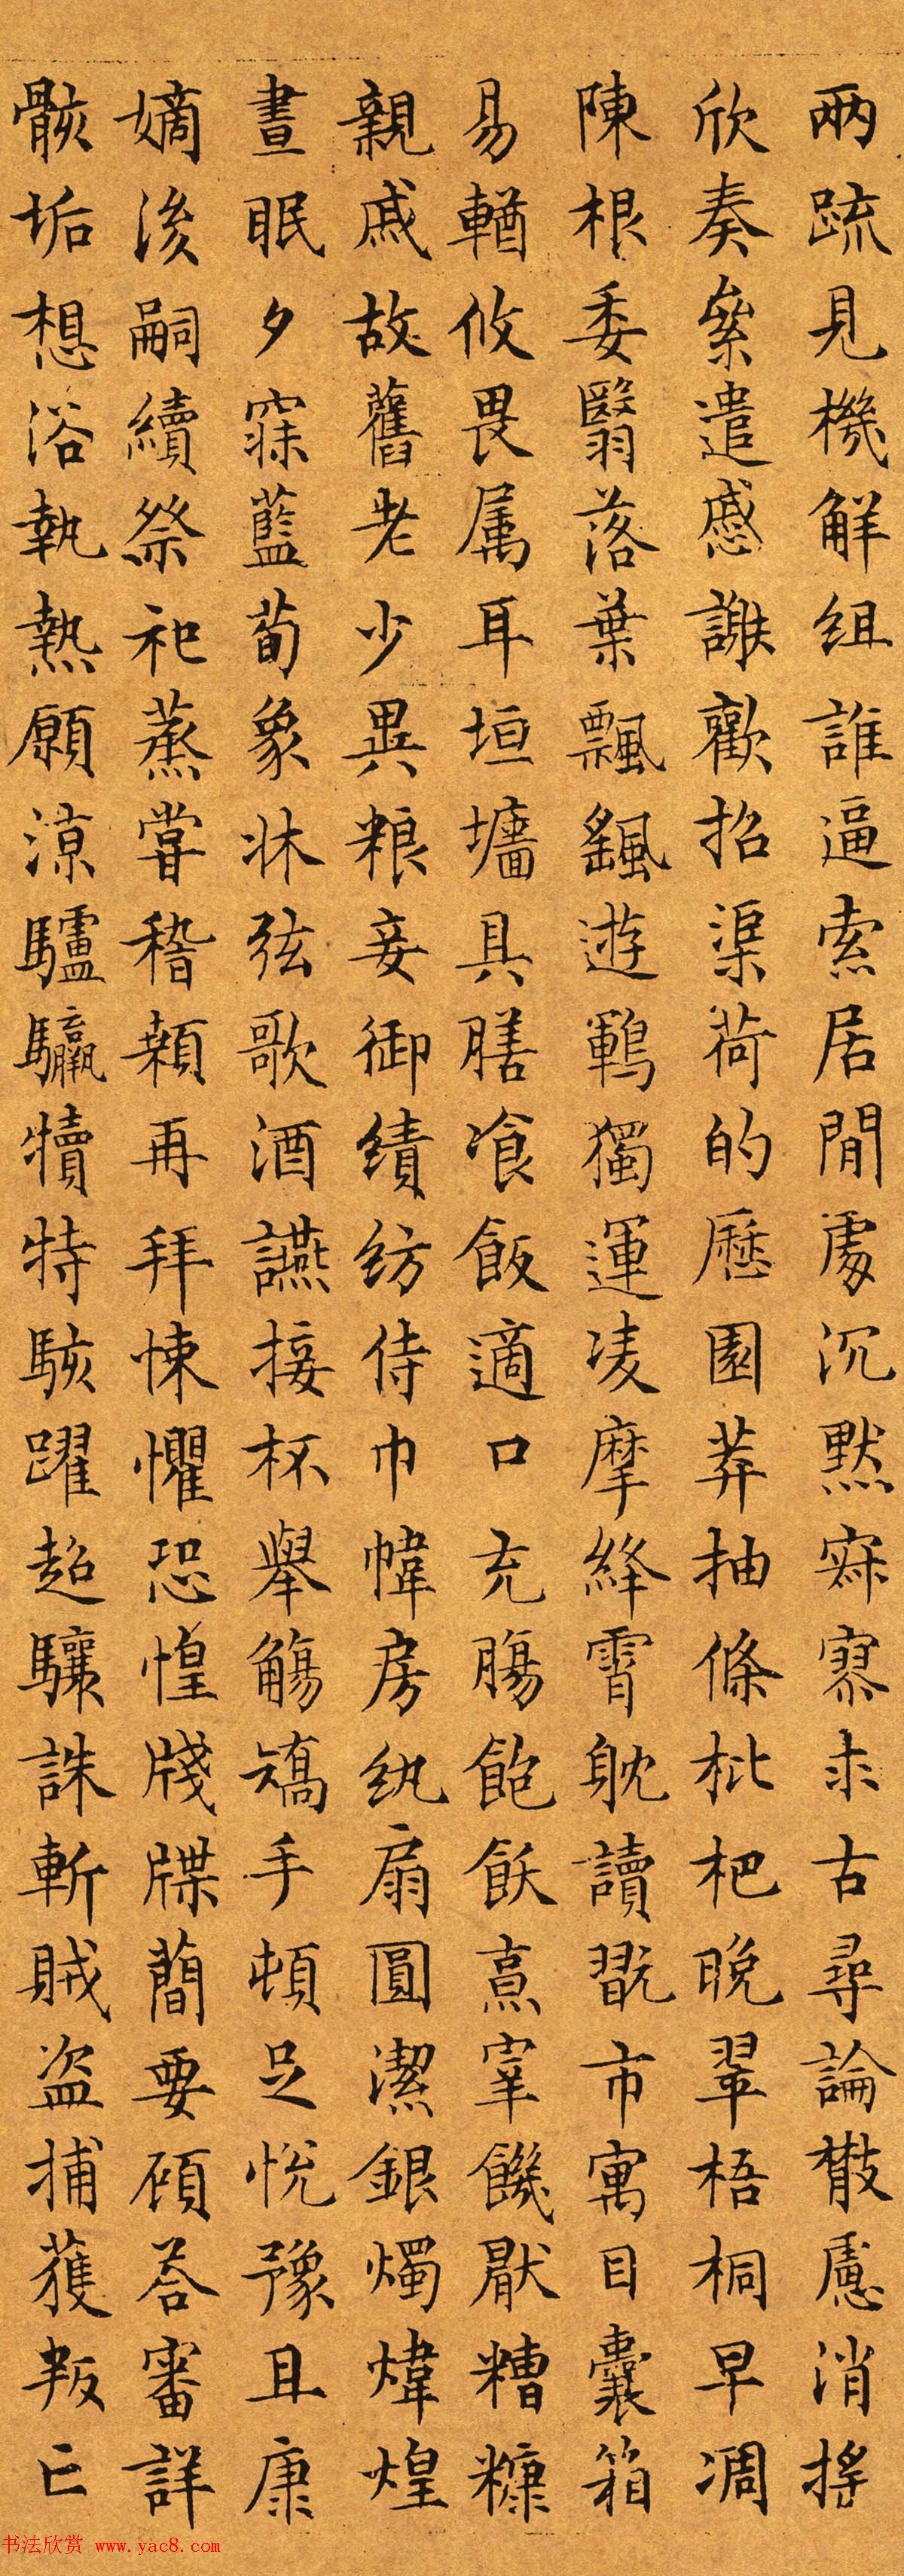 兩疏見機解組誰逼索居閒處沉默寂寥求古尋論散慮消搖
欣奏絫遣慼謝歡招渠荷的歷園莽抽條枇杷晚翠梧桐早凋
陳根委翳落葉飄颻遊鵾獨運凌摩絳霄耽讀翫市寓目囊箱
易輶攸畏属耳垣墻具膳飡飯適口充腸飽飫烹宰饑厭糟糠
親戚故舊老少異粮妾御績紡侍巾幃房紈扇圓潔銀燭煒煌
晝眠夕寐藍荀象牀弦歌酒讌接杯舉觴矯手頓足悅豫且康
嫡後嗣續祭祀蒸嘗稽顙再拜悚懼恐惶牋牒蕳要顧荅審詳
骸垢想浴執熱願涼驢驘犢特駭躍超驤誅斬賊盗捕獲叛亡
书法欣赏 www.yac8.com